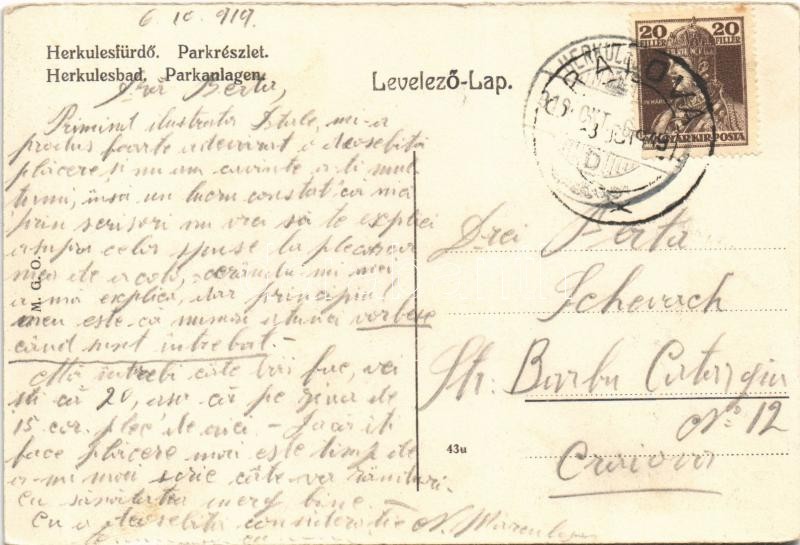 6.10.919.
Herkulesfürdő. Parkrészlet.
Herkulesbad, Parkanlagen.
Levelező-Lap.
20 FILLÉR 20 FILLÉR
MAGYAR KIR. POSTA
CRAIOVA
D-ră Berta,
Primind ilustrata Dtale, mi-a
produs foarte adevărat o deosebită
plăcere, și nu am cuvinte a-ți mul
țumi, însă un lucru constat că nu
prin scrisori nu vrei să te explici
asupra celor spuse la plecarea
mea de acolo, cerându-mi
a mă explica, dar principiul
meu este că numai atunci vorbesc
când sunt întrebat.-
Mă întrebi câte băi fac, vei
ști că 20, așa că pe ziua de
15 cor. plec de aici. - Dacă îți
face plăcere mai este timp de
a-mi mai scrie câte va rânduri.
Cu sănătatea merg bine. -
Cu o deosebită considerație
M. G. O.
43u
D-rei Berta
Schevach
Str. Barbu Catargiu
No 12
Craiova